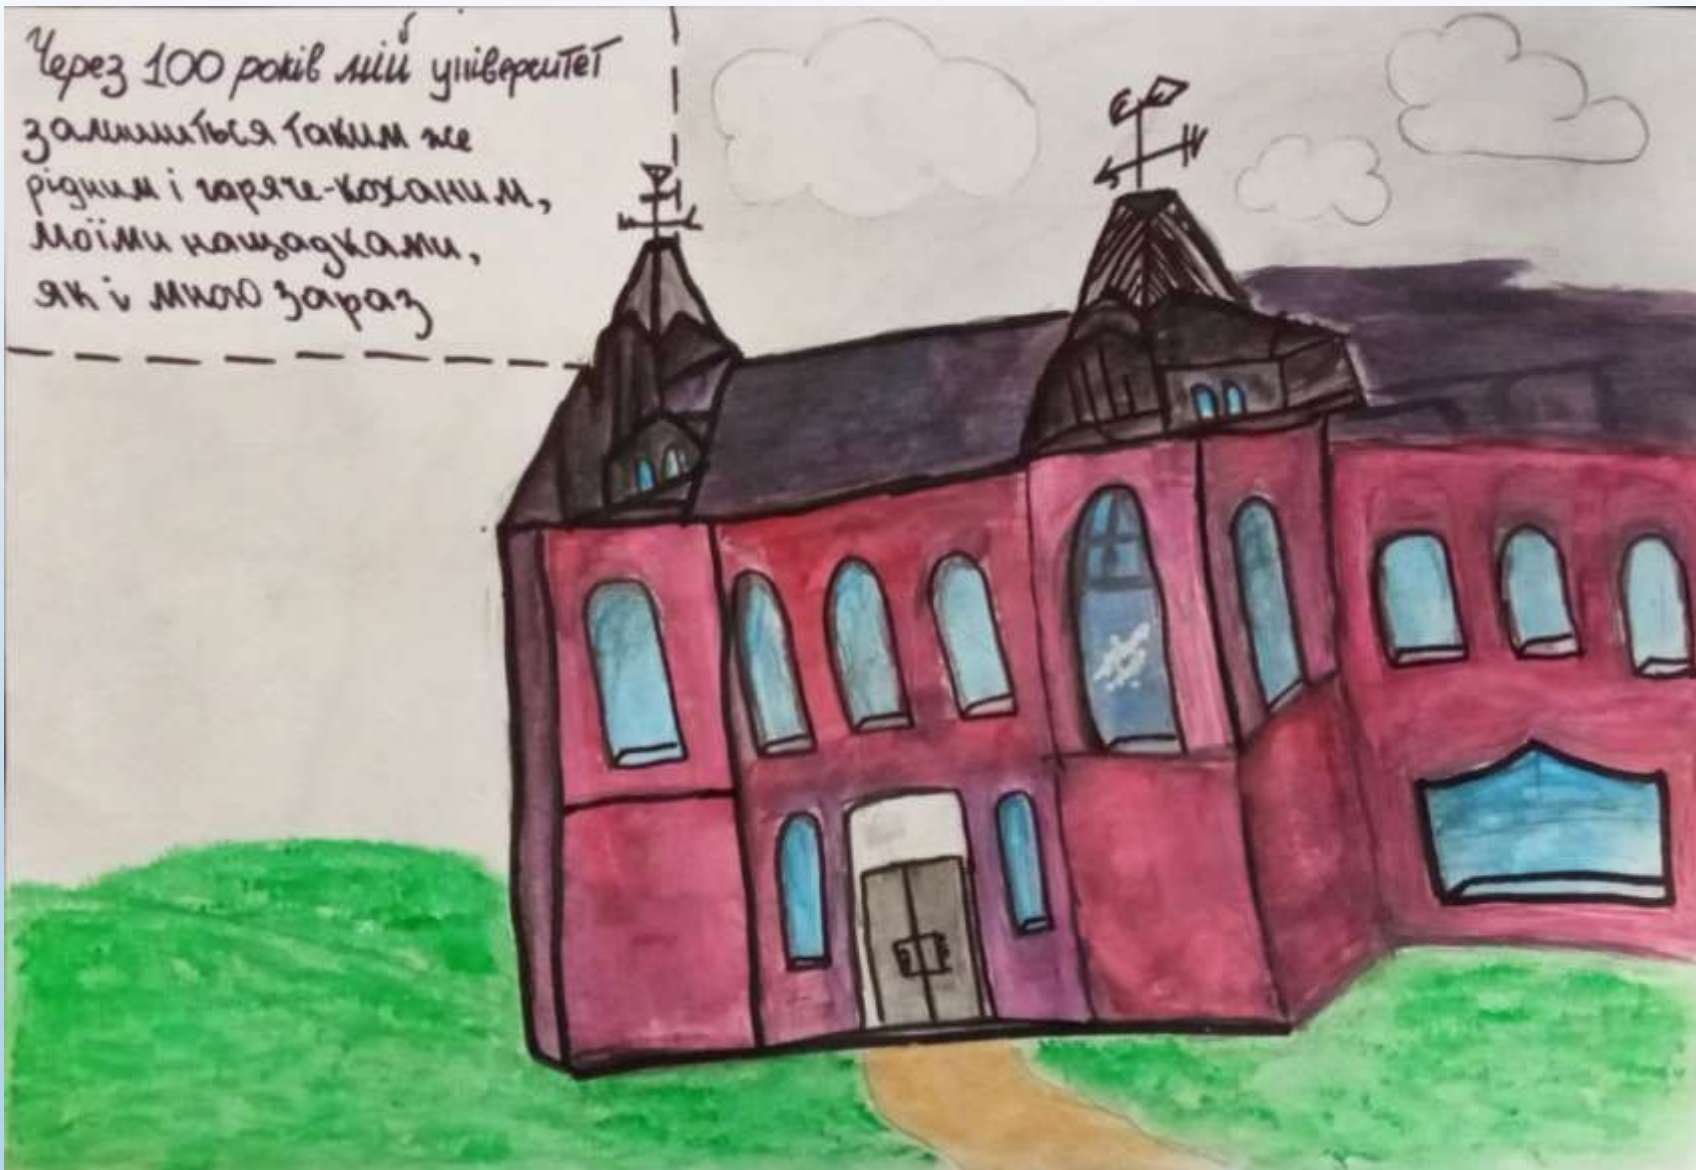 Через 100 років мій університет
залишиться таким же
рідним і гаряче-коханим,
моїми нащадками,
як і мною зараз